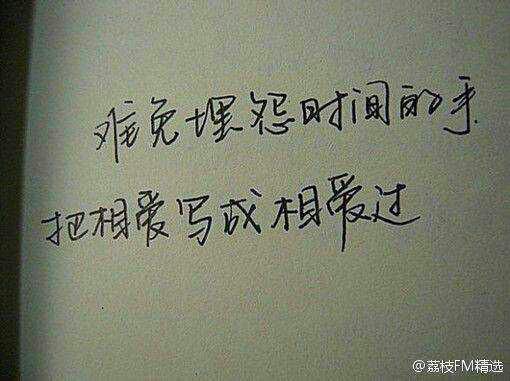 难免埋怨时间的手
把相爱写成相爱过
@荔枝FM精选